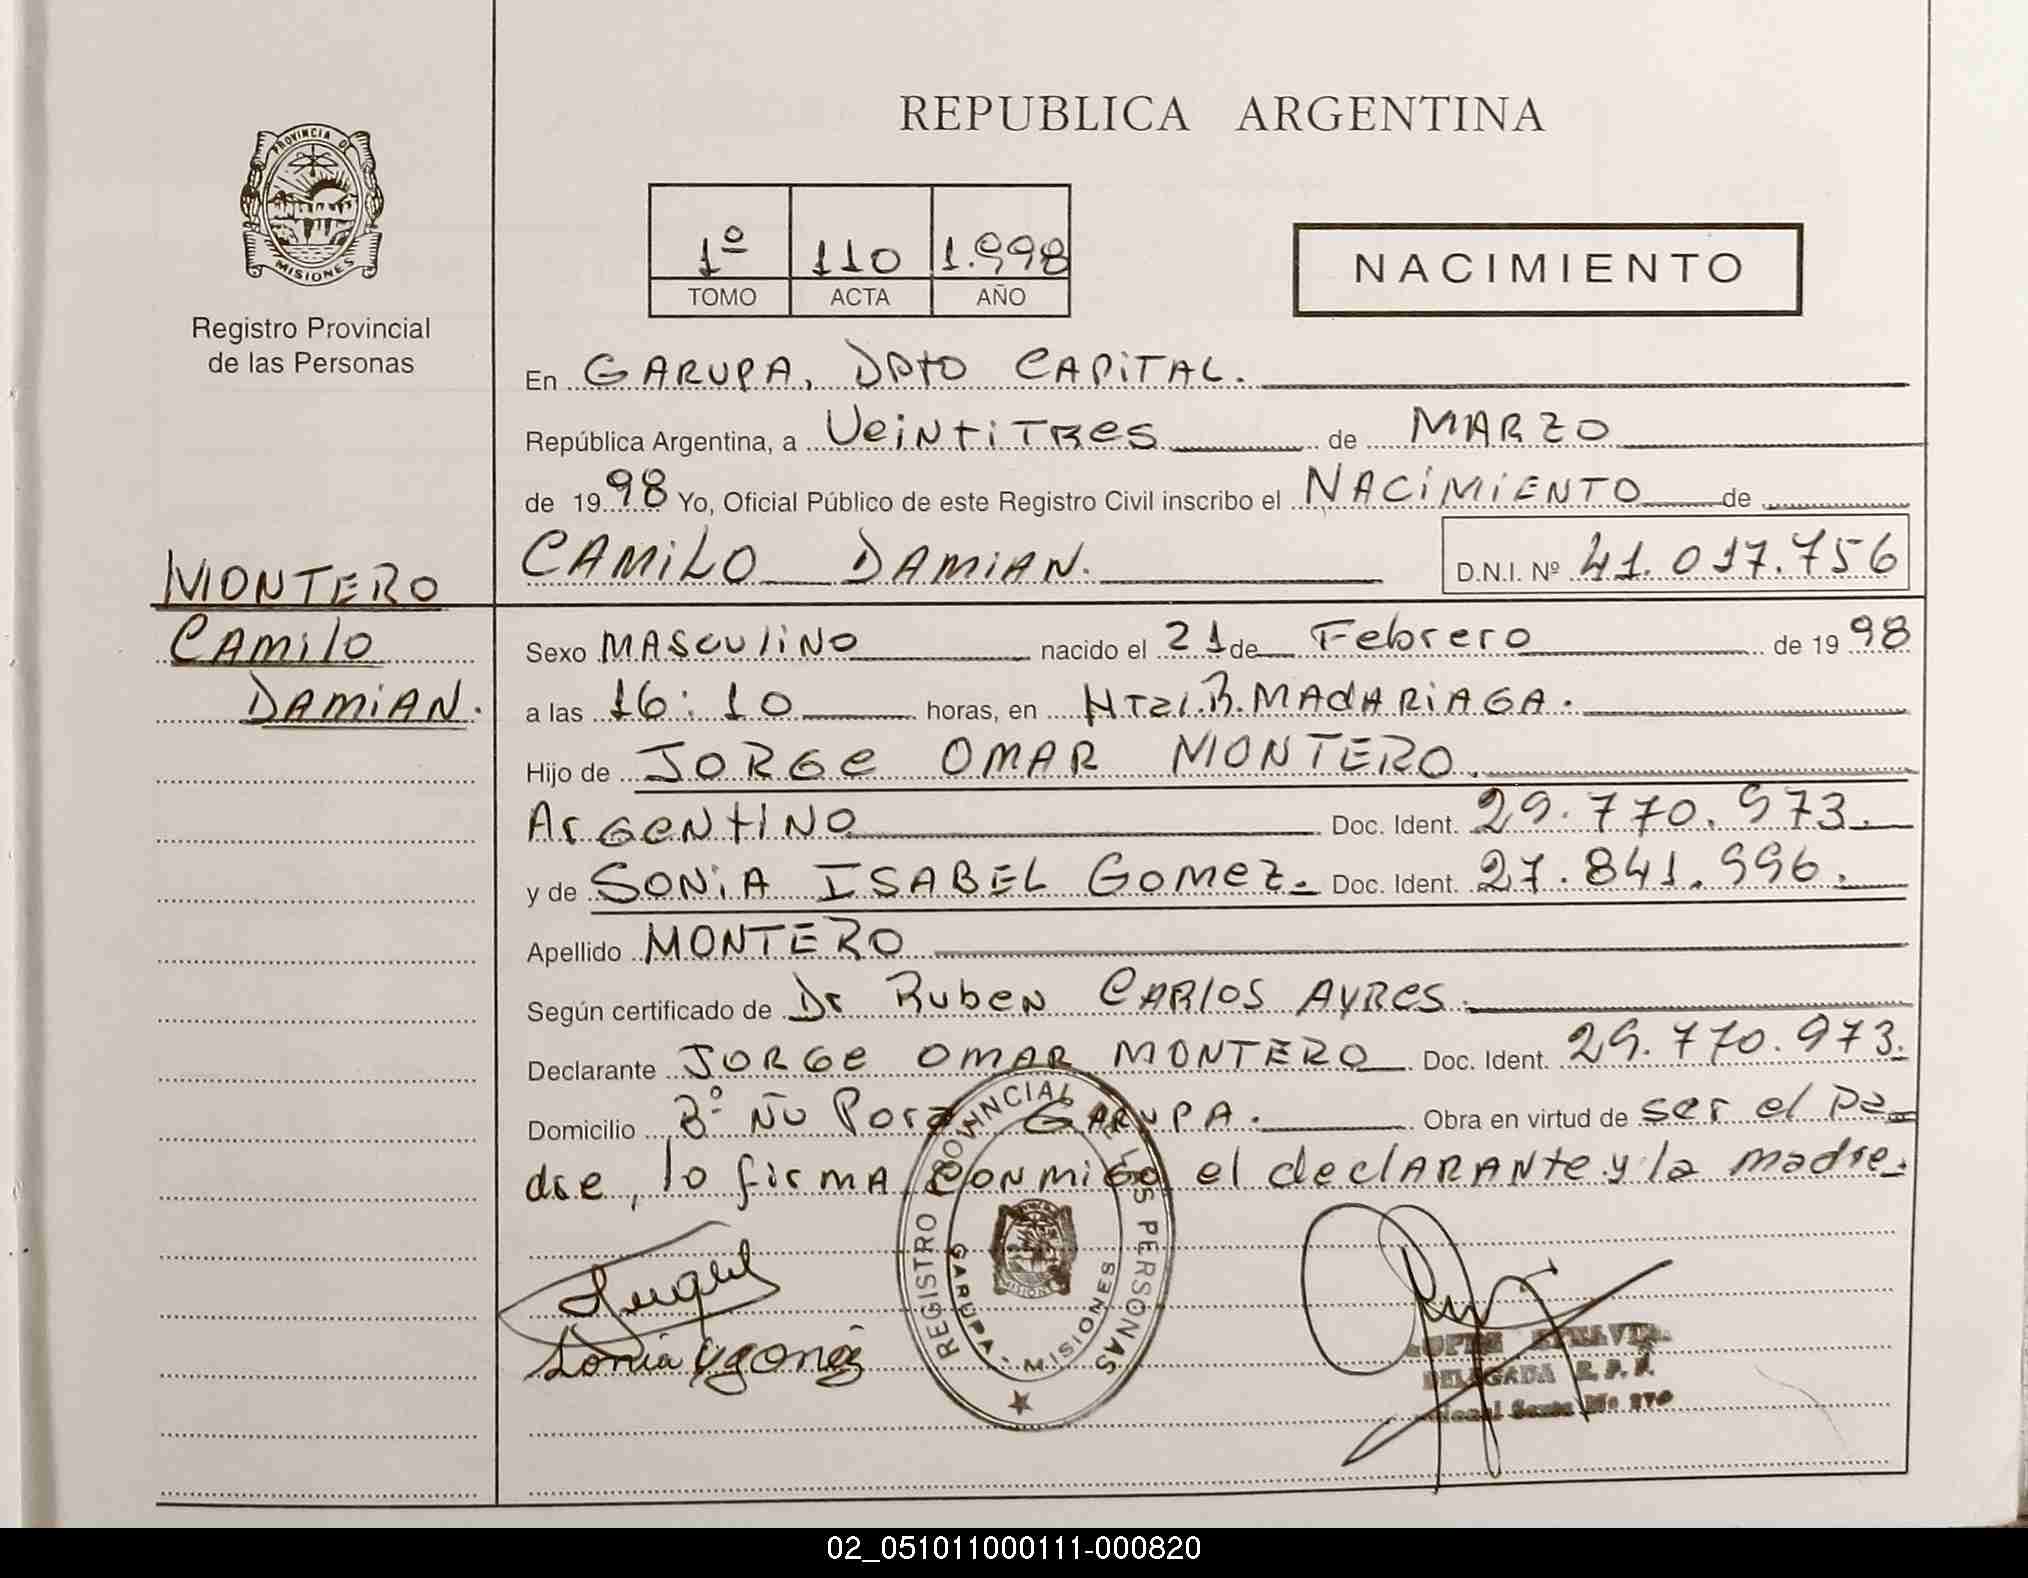 REPUBLICA ARGENTINA
PROVINCIA DE
MISIONES
Registro Provincial
de las Personas
1º 110 1.998
TOMO ACTA AÑO
NACIMIENTO
En GARUPA, DPto CAPITAL.
República Argentina, a VeiNtiTRes de MARZO
de 1998 Yo, Oficial Público de este Registro Civil inscribo el NACIMIENTO de
CAMILO DAMIAN. D.N.I. Nº 41.017.756
MONTERO
CAMilo
DAMIAN.
Sexo MASCULINO nacido el 21 de Febrero de 1998
a las 16:10 horas, en HTzl.R.MAdARIAGA.
Hijo de JORGe OMAR MONTERO.
ArGeNtINO Doc. Ident. 29.770.973.
y de SONiA ISABEL GomeZ. Doc. Ident. 27.841.996.
Apellido MONTERO
Según certificado de Dr RubeN CARlOS AyRes.
Declarante JORGe OMAR MONTERO Doc. Ident. 29.770.973.
Domicilio Bº Ñu Pora GARUPA. Obra en virtud de ser el Pa
dre, lo firMA CONMIGO el declARANte y la madre.
REGISTRO PROVINCIAL DE LAS PERSONAS
GARUPA - MISIONES
MISIONES
Sonia Ygomez
DELEGADA R. P. P.
02_051011000111-000820